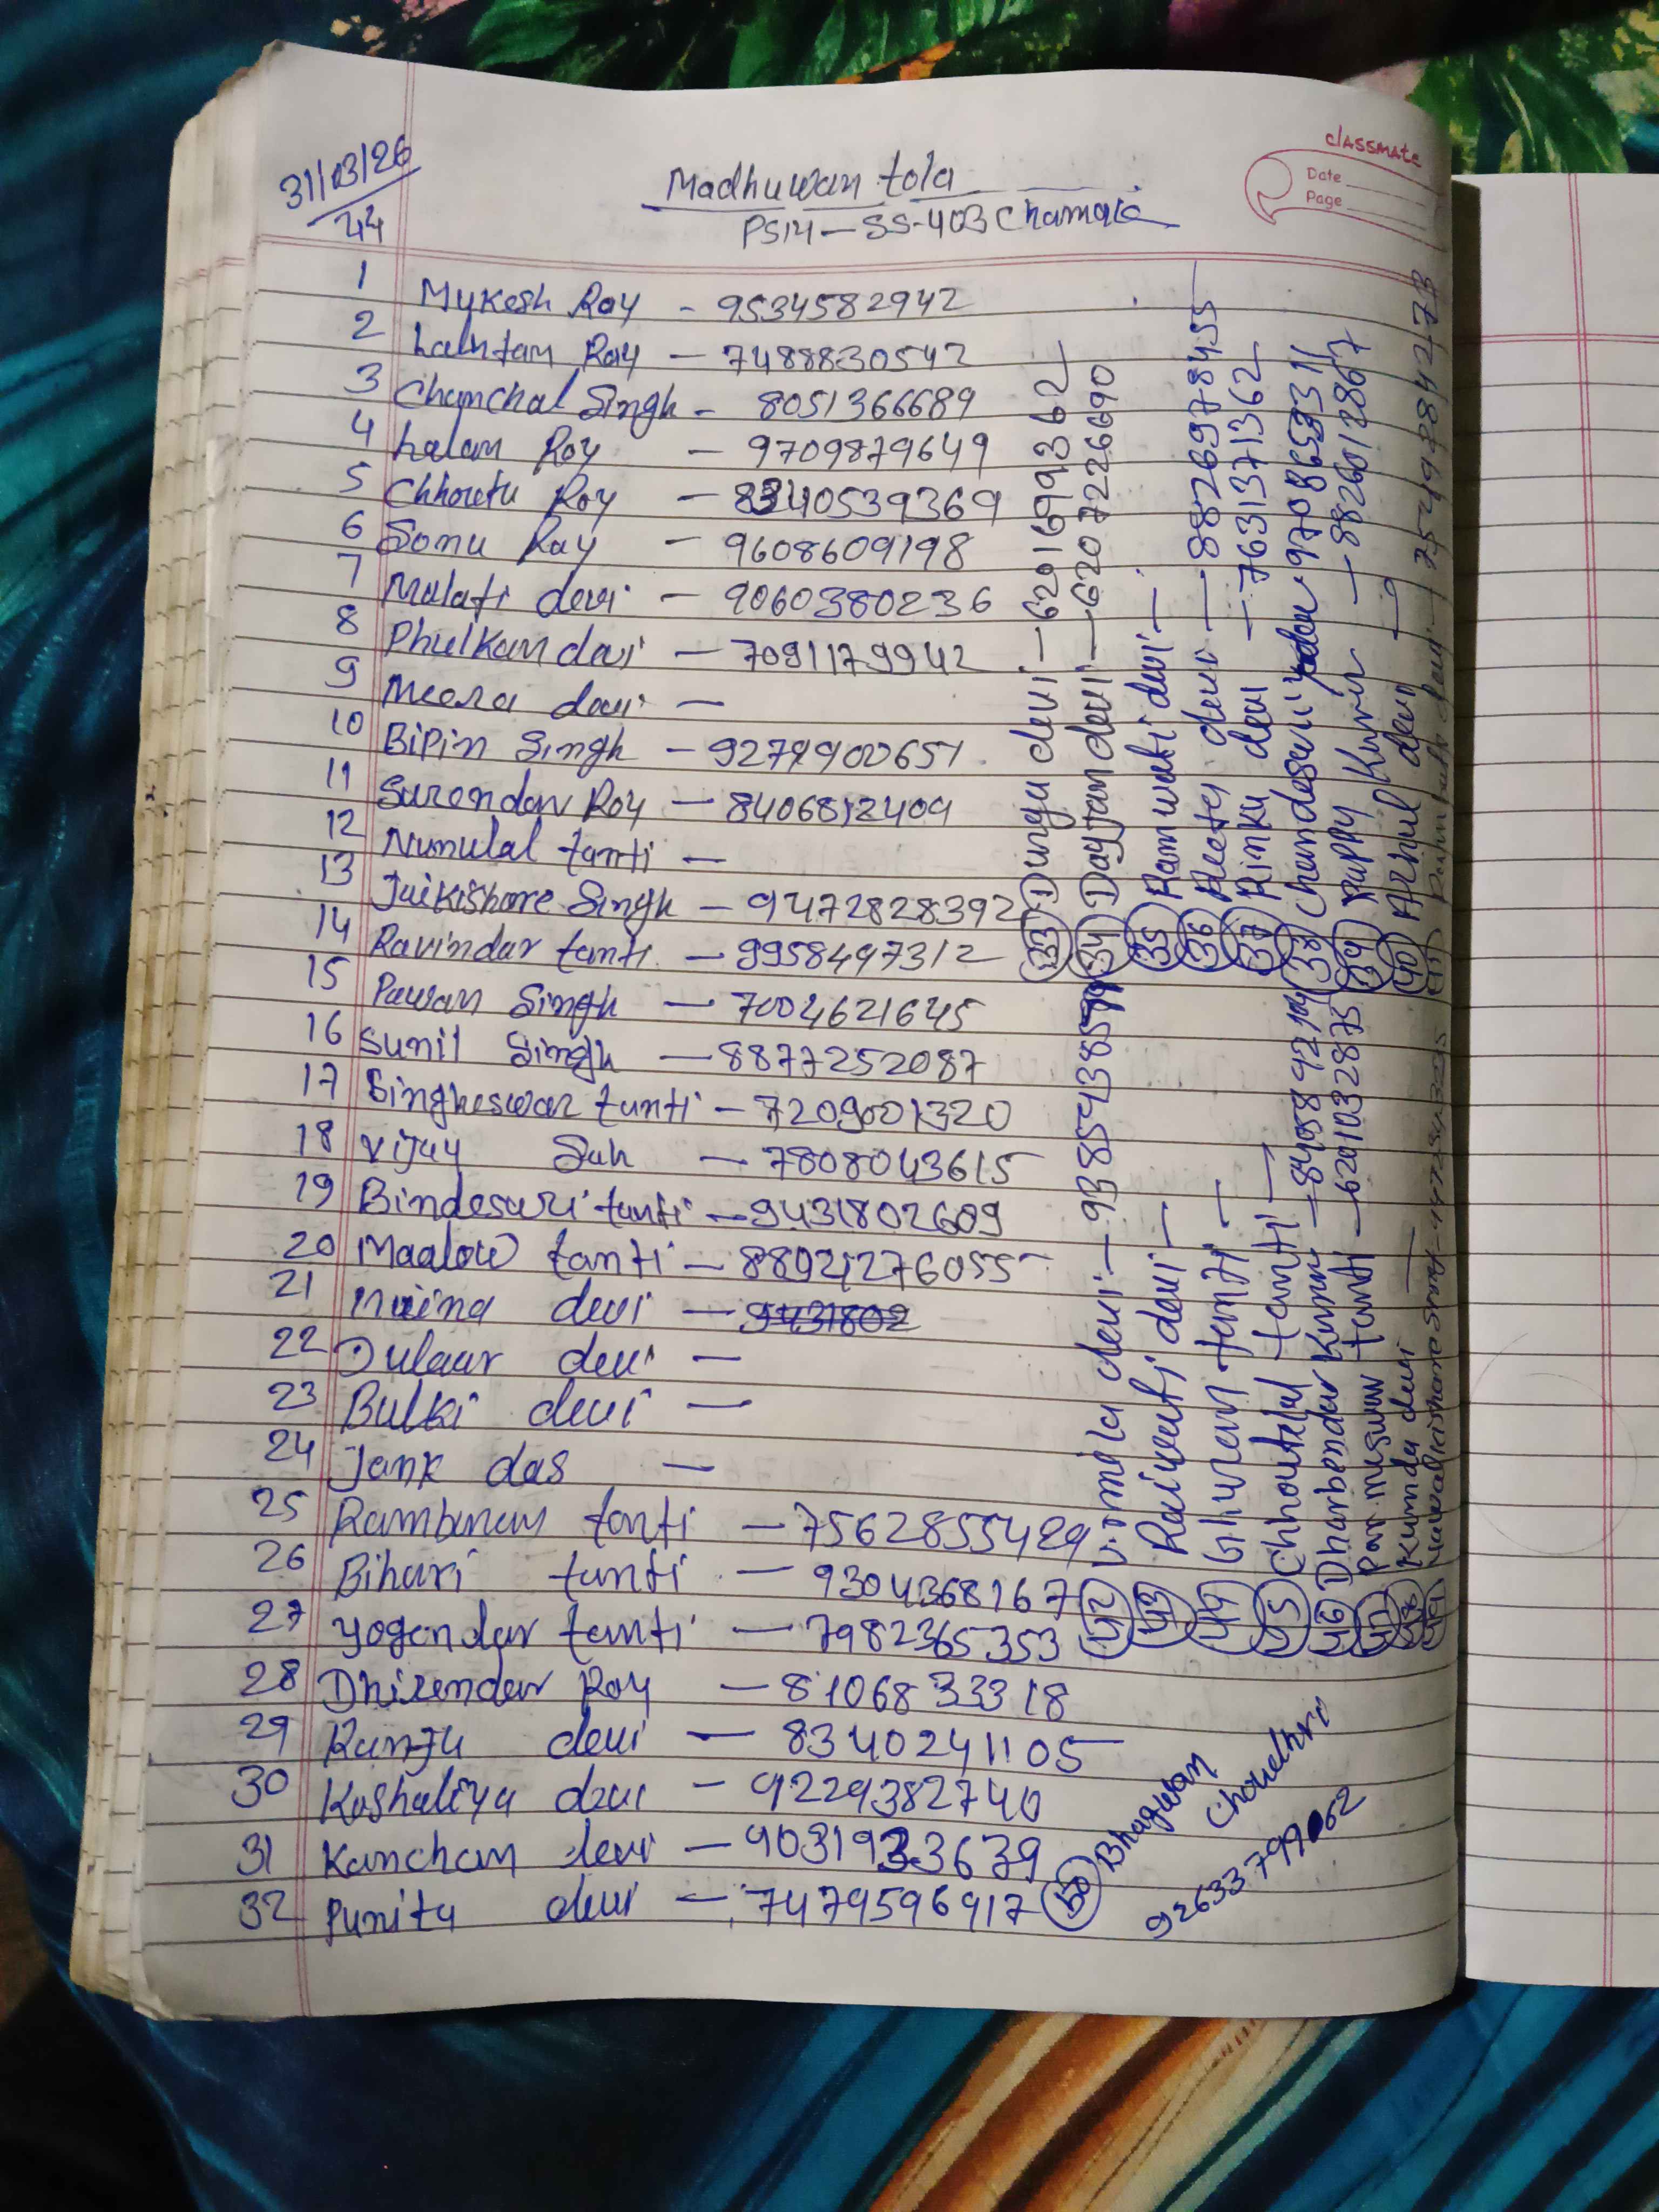 classmate
Date
Page
31/03/26
44
Madhuwan tola
PS14-SS-403 Chamara
1 Mukesh Roy - 9534582942
2 Lalntan Roy - 7488830542
3 Chanchal Singh - 8051366689
4 Lalan Roy - 9709879649
5 Chhoutu Roy - 8340539369
6 Sonu Ray - 9608609198
7 Malati devi - 9060380236
8 Phulkan devi - 7091179942
9 Meera devi -
10 Bipin Singh -
11 Surendar Roy - 8406812409
12 Nunulal tanti -
13 Jaikishore Singh - 9472828392
14 Ravindar tanti - 9958497312
15 Pawan Singh - 7004621645
16 Sunil Singh - 8877252087
17 Singheswar tanti - 7209001320
18 Vijay Sah - 7808043615
19 Bindesari tanti - 9431802609
20 tanti -
21 Maina devi - 9431802
22 Dulaar devi -
23 Bulki devi -
24 Jank das -
25 tanti - 7562855429
26 Bihari tanti - 9304368167
27 Yogendar tanti - 7982365353
28 Dhirendar Roy - 8106833318
29 Ranju devi - 8340241105
30 Koshaliya devi - 9229382740
31 Kanchan devi -
32 Punita devi - 7479596917
33 Durga devi - 6201699362
34 Dayjan devi - 6207226690
35 Ramwati devi -
36 devi - 8826978455
37 Rinku devi - 7631371362
38 Chandeswri Yadav
39 Pappy Kumir - 88260128667
40 Arhul devi -
devi - 7549284273
42 Urmila devi -
43 Rajwati devi -
44 tanti -
45 Chhoutelal tanti -
46 Dharbendar Kumar -
47 tanti - 6201032875
Kumda devi -
Nawalkishore
50 Bhagwan
Choudhri